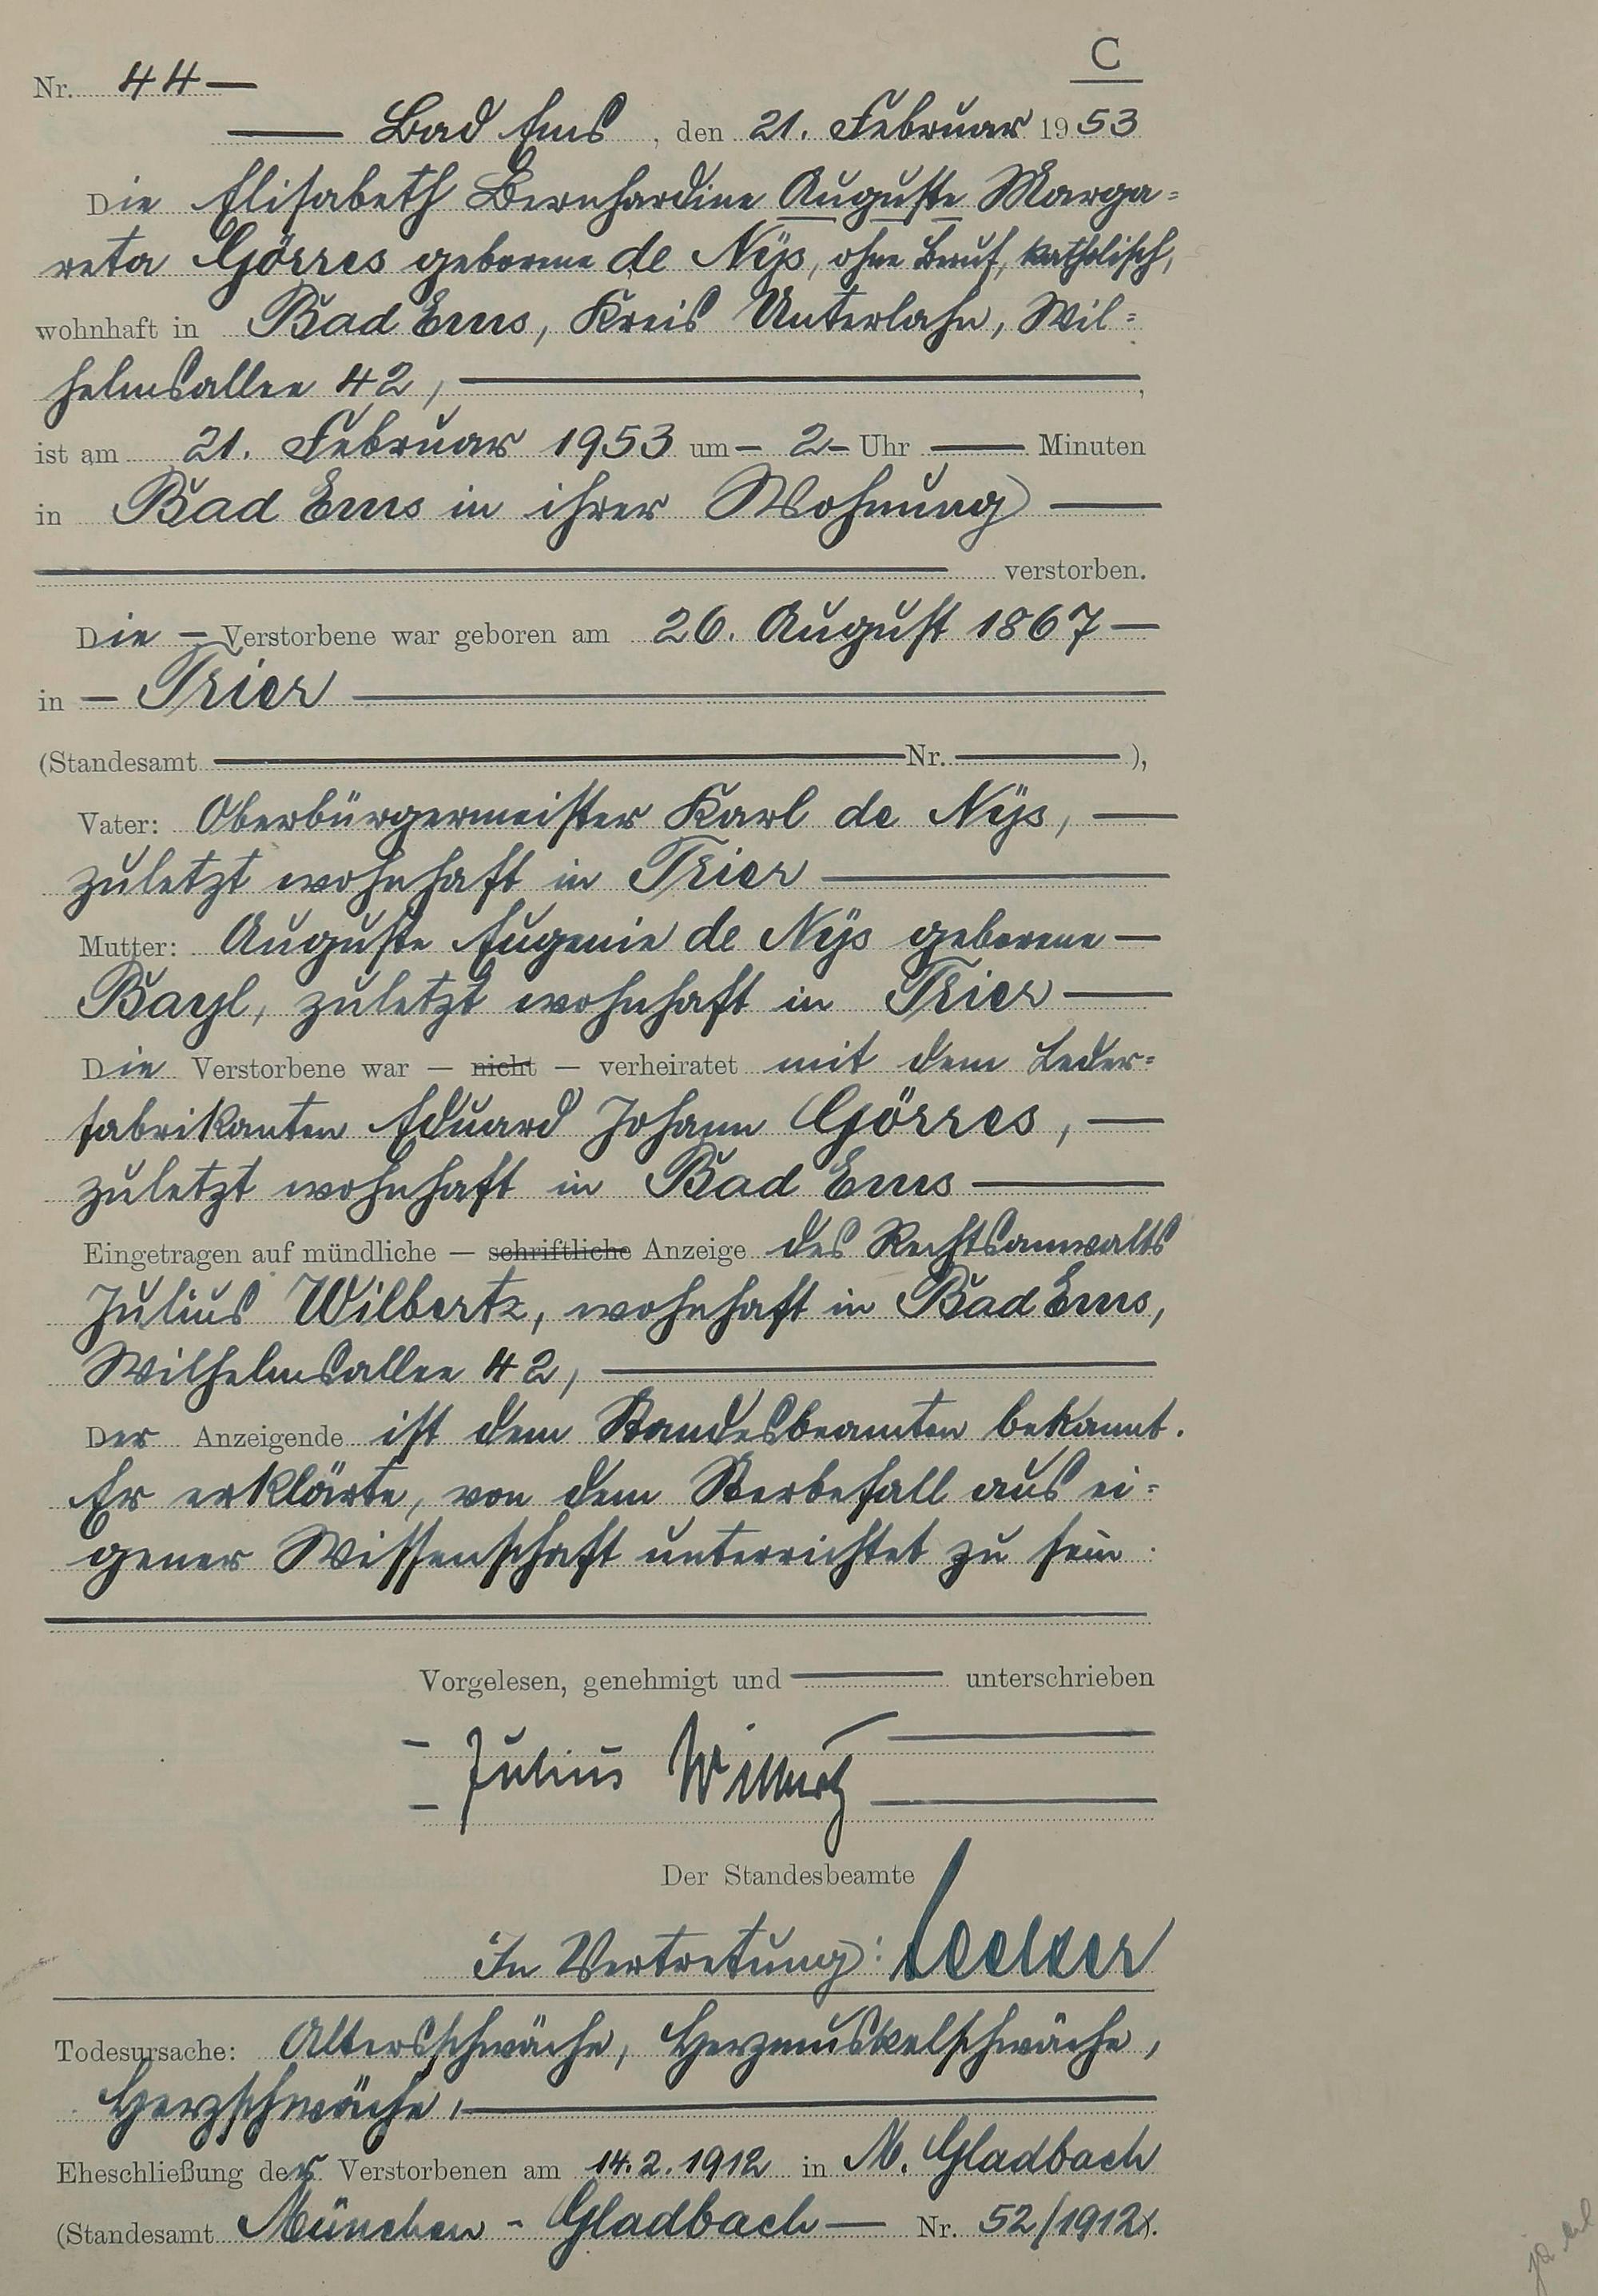 C
Nr. 44 —
— Bad Ems, den 21. Februar 1953
Die Elisabeth Bernhardine Auguste Marga=
reta Görres geborene de Nÿs, ohne Beruf, katholisch,
wohnhaft in Bad Ems, Kreis Unterlahn, Wil=
helmsallee 42, —,
ist am 21. Februar 1953 um — 2 — Uhr — Minuten
in Bad Ems in ihrer Wohnung —
— verstorben.
Die — Verstorbene war geboren am 26. August 1867 —
in — Trier —
(Standesamt — Nr. — ),
Vater: Oberbürgermeister Karl de Nÿs, —
zuletzt wohnhaft in Trier —
Mutter: Auguste Eugenie de Nÿs geborene —
Bayl, zuletzt wohnhaft in Trier —
Die Verstorbene war — nicht — verheiratet mit dem Leder=
fabrikanten Eduard Johann Görres, —
zuletzt wohnhaft in Bad Ems —
Eingetragen auf mündliche — schriftliche Anzeige des Rechtsanwalts
Julius Wilbertz, wohnhaft in Bad Ems,
Wilhelmsallee 42, —
Der Anzeigende ist dem Standesbeamten bekannt.
Er erklärte, von dem Sterbefall aus ei=
gener Wissenschaft unterrichtet zu sein.
Vorgelesen, genehmigt und — unterschrieben
— Julius Wilbertz —
Der Standesbeamte
In Vertretung:
Todesursache: Altersschwäche, Herzmuskelschwäche,
Herzschwäche, —
Eheschließung der Verstorbenen am 14.2.1912 in M. Gladbach
(Standesamt München - Gladbach — Nr. 52/1912).